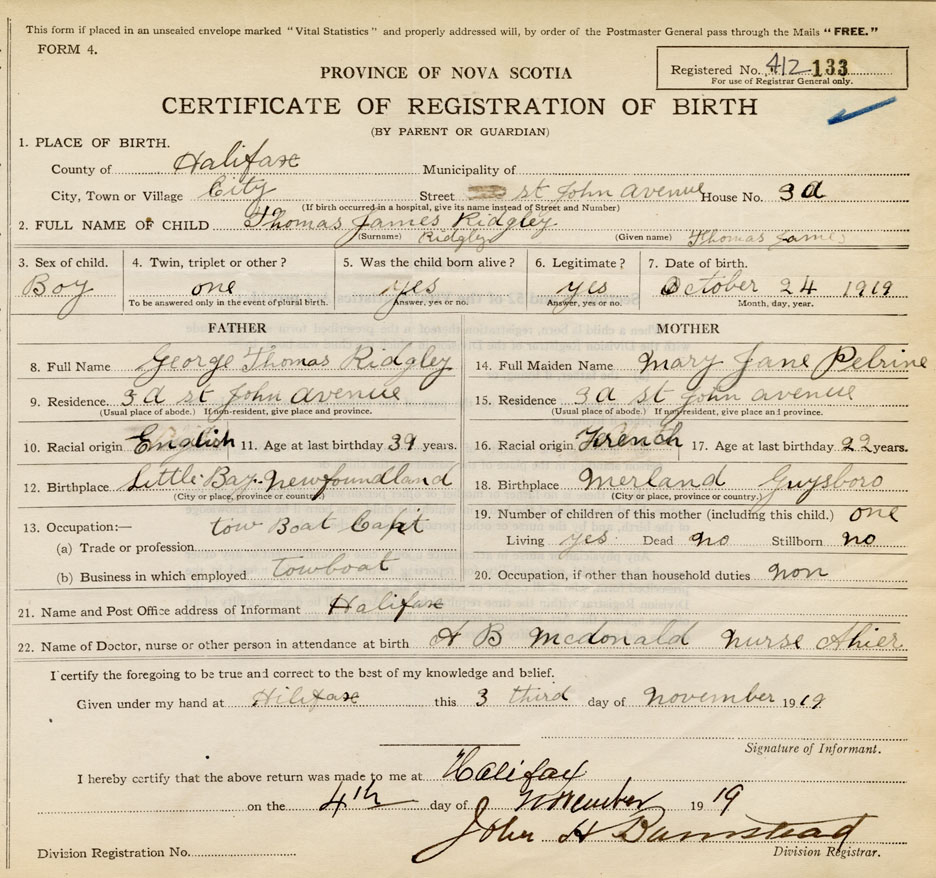 This form if placed in an unsealed envelope marked "Vital Statistics" and properly addressed will, by order of the Postmaster General pass through the Mails "FREE."
FORM 4.
Registered No. 412 133
For use of Registrar General only.
PROVINCE OF NOVA SCOTIA
CERTIFICATE OF REGISTRATION OF BIRTH
(BY PARENT OR GUARDIAN)
1. PLACE OF BIRTH.
County of Halifax Municipality of
City, Town or Village City Street st John avenue House No. 3d
(If birth occurred in a hospital, give its name instead of Street and Number)
2. FULL NAME OF CHILD Thomas James Ridgley
(Surname) Ridgley (Given name) Thomas James
3. Sex of child. 4. Twin, triplet or other? 5. Was the child born alive? 6. Legitimate? 7. Date of birth.
Boy one yes yes October 24 1919
To be answered only in the event of plural birth. Answer, yes or no. Answer, yes or no. Month, day, year.
FATHER MOTHER
8. Full Name George Thomas Ridgley 14. Full Maiden Name Mary Jane Pelrine
9. Residence 3d st John avenue 15. Residence 3d st John avenue
(Usual place of abode.) If non-resident, give place and province. (Usual place of abode.) If non-resident, give place and province.
10. Racial origin English 11. Age at last birthday 39 years. 16. Racial origin French 17. Age at last birthday 22 years.
12. Birthplace Little Bay Newfoundland 18. Birthplace Merland Guysboro
(City or place, province or country) (City or place, province or country.)
13. Occupation:— tow Boat Capt 19. Number of children of this mother (including this child.) one
(a) Trade or profession Living yes Dead no Stillborn no
(b) Business in which employed towboat 20. Occupation, if other than household duties non
21. Name and Post Office address of Informant Halifax
22. Name of Doctor, nurse or other person in attendance at birth A B Mcdonald nurse
I certify the foregoing to be true and correct to the best of my knowledge and belief.
Given under my hand at Hilifax this 3 third day of November 1919
Signature of Informant.
I hereby certify that the above return was made to me at Halifax
on the 4th day of November 1919
John H Barnstead
Division Registration No. Division Registrar.